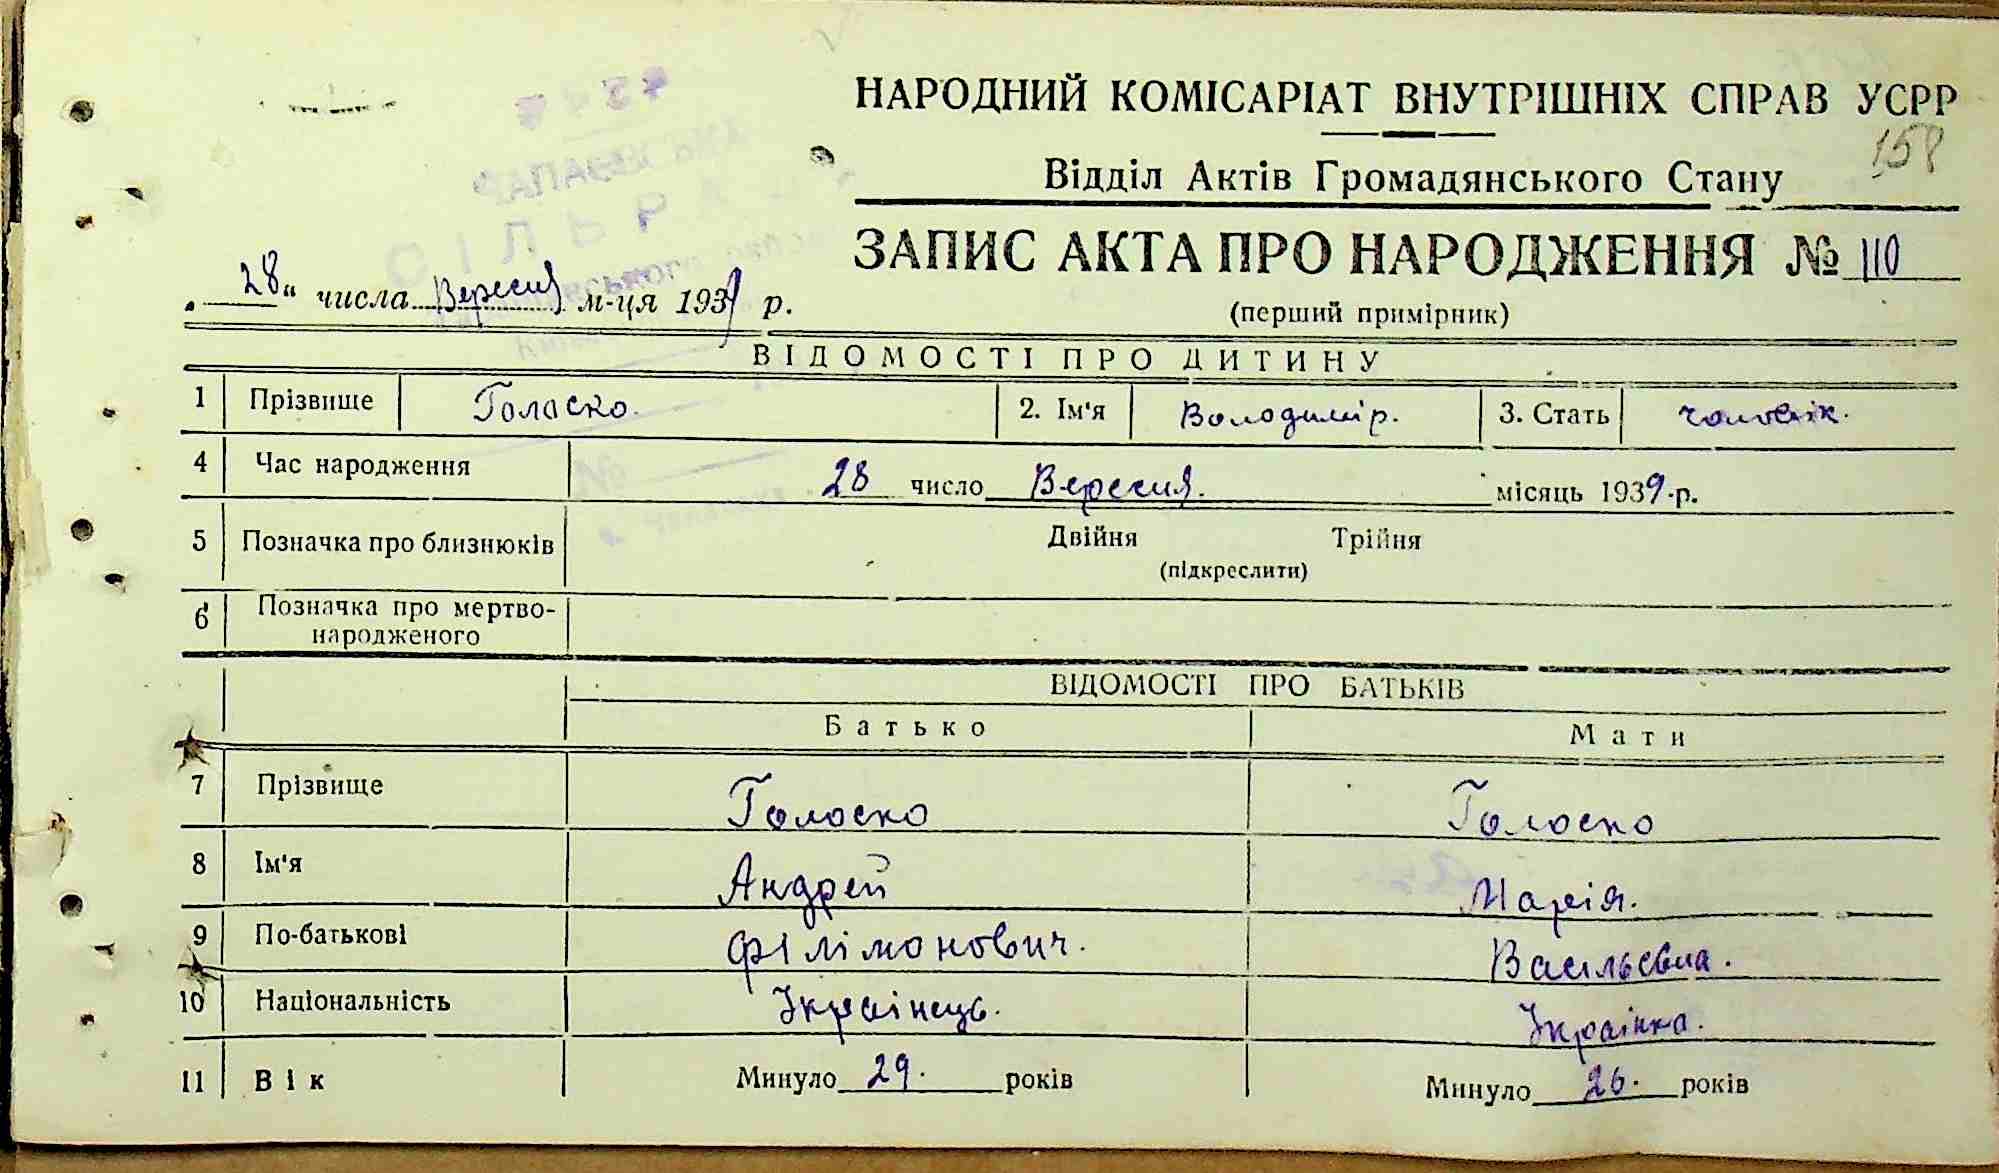 НАРОДНИЙ КОМІСАРІАТ ВНУТРІШНІХ СПРАВ УСРР
158
Відділ Актів Громадянського Стану
ЧАПАЄВСЬКА
СІЛЬРАДА
ЗАПИС АКТА ПРО НАРОДЖЕННЯ № 110
„28" числа Вересня м-ця 1939 р.
(перший примірник)
ВІДОМОСТІ ПРО ДИТИНУ
1 Прізвище Голоско. 2. Ім'я Володимір. 3. Стать чоловік.
4 Час народження 28 число Вересня. місяць 1939 р.
№
5 Позначка про близнюків Двійня Трійня
(підкреслити)
6 Позначка про мертво-
народженого
ВІДОМОСТІ ПРО БАТЬКІВ
Батько Мати
7 Прізвище Голоско Голоско
8 Ім'я Андрей Марія.
9 По-батькові Філімонович. Васильєвна.
10 Національність Українець. Українка.
11 Вік Минуло 29. років Минуло 26. років